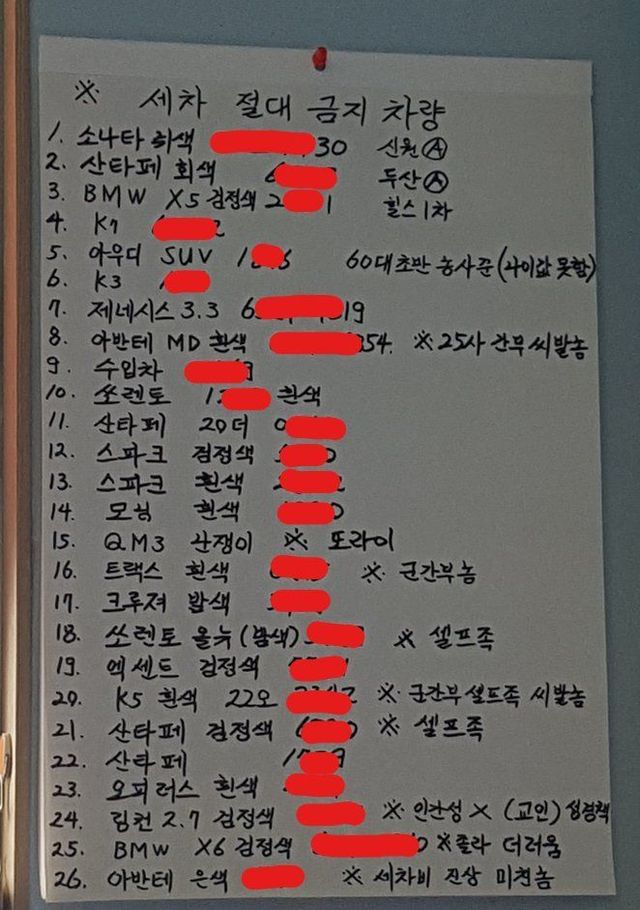 ※ 세차 절대 금지 차량
1. 소나타 회색 30 신원 Ⓐ
2. 산타페 회색 6 두산 Ⓐ
3. BMW X5 검정색 2 1 힐스 1차
4. K7
5. 아우디 SUV 1 6 60대 초반 농사꾼 (나이값 못함)
6. K3
7. 제네시스 3.3 6 19
8. 아반테 MD 흰색 354. ※ 25사 간부 씨발놈
9. 수입차
10. 쏘렌토 12 흰색
11. 산타페 20더 0
12. 스파크 검정색 0
13. 스파크 흰색
14. 모닝 흰색 0
15. QM3 난쟁이 ※ 또라이
16. 트랙스 흰색 ※ 군간부놈
17. 크루져 밤색
18. 쏘렌토 올뉴 (밤색) ※ 셀프족
19. 엑센트 검정색
20. K5 흰색 22오 ※ 군간부 셀프족 씨발놈
21. 산타페 검정색 6 0 ※ 셀프족
22. 산타페 1 9
23. 오피러스 흰색
24. 링컨 2.7 검정색 ※ 인간성 X (교인) 성경책
25. BMW X6 검정색 0 ※ 졸라 더러움
26. 아반테 은색 ※ 세차비 진상 미친놈